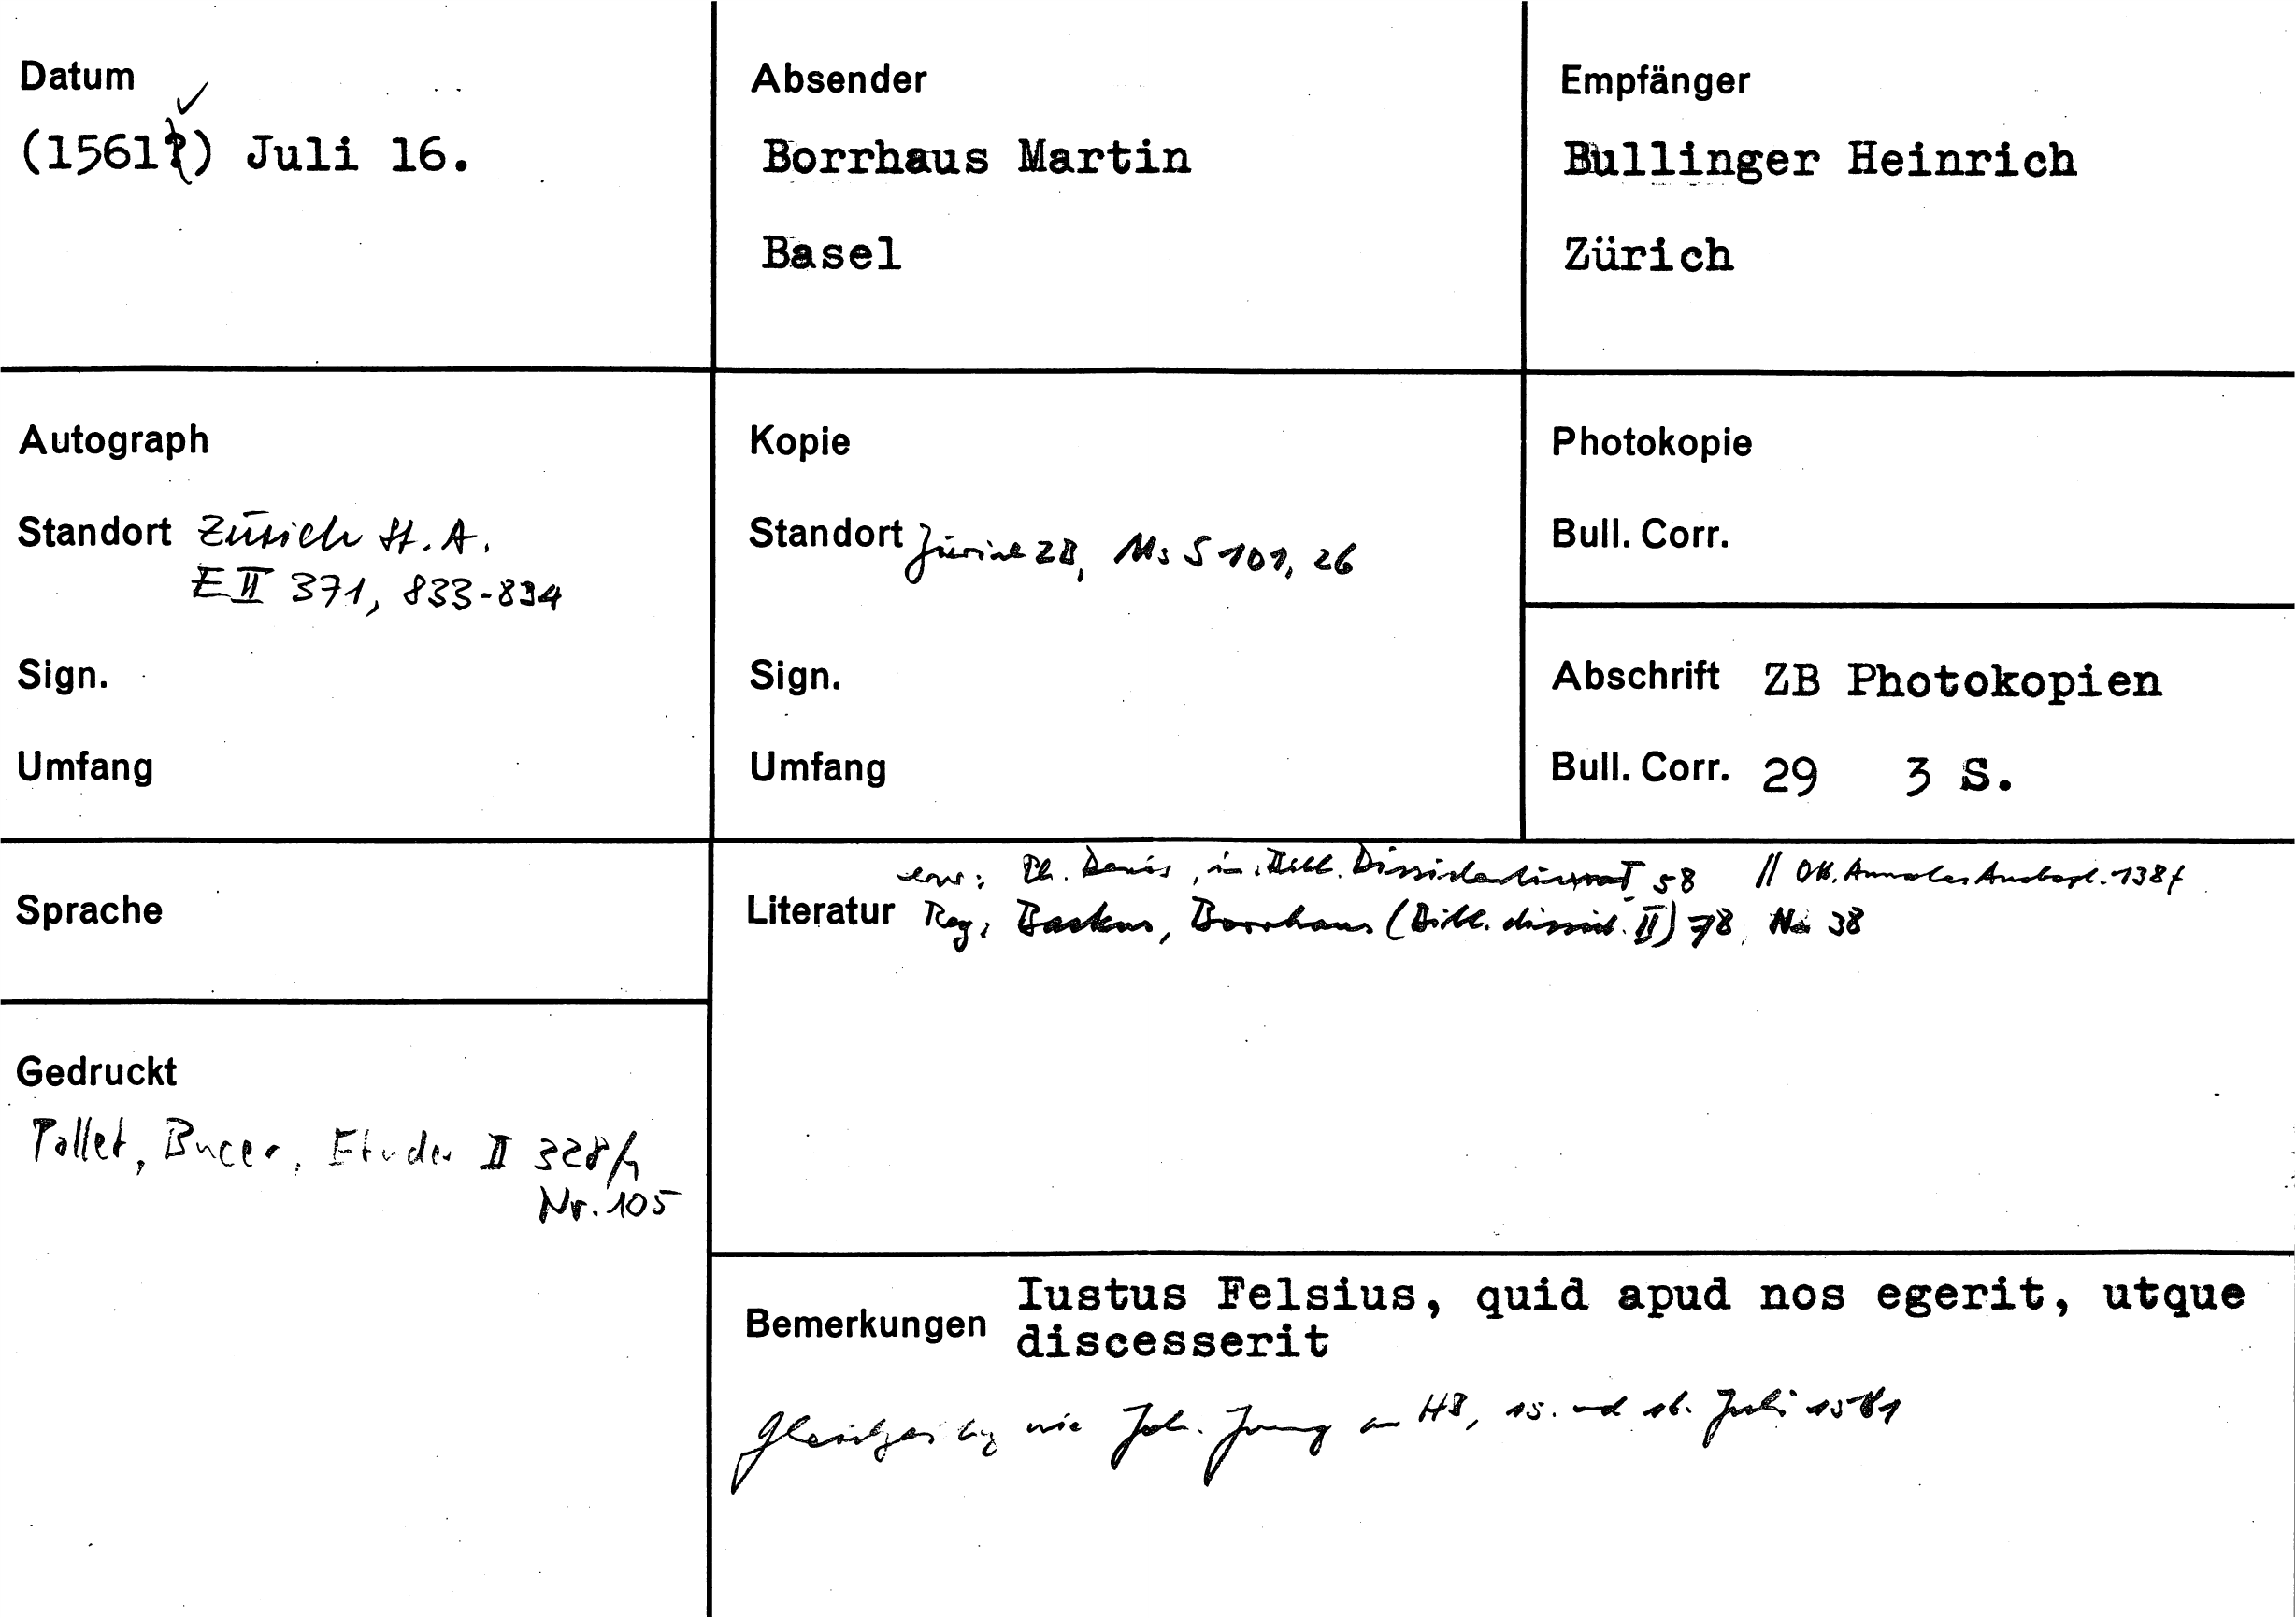 Datum
✓
(1561?) Juli 16.
Absender
Borrhaus Martin
Basel
Empfänger
Bullinger Heinrich
Zürich
Autograph
Standort Zürich St. A.
E II 371, 833-834
Sign.
Umfang
Kopie
Standort Zürich ZB, Ms S 101, 26
Sign.
Umfang
Photokopie
Bull. Corr.
Abschrift ZB Photokopien
Bull. Corr. 29 3 S.
Sprache
Gedruckt
Pollet, Bucer, Etudes II 328f,
Nr. 105
erw: Ph. Denis, in: Bibl. Dissidentium I 58 //
Literatur Reg: Backus, Borrhaus (Bibl. dissid. II) 78, No 38
Bemerkungen Iustus Felsius, quid apud nos egerit, utque
discesserit
Gleichzeitig wie Joh. Jung an HB, 15. und 16. Juli 1561